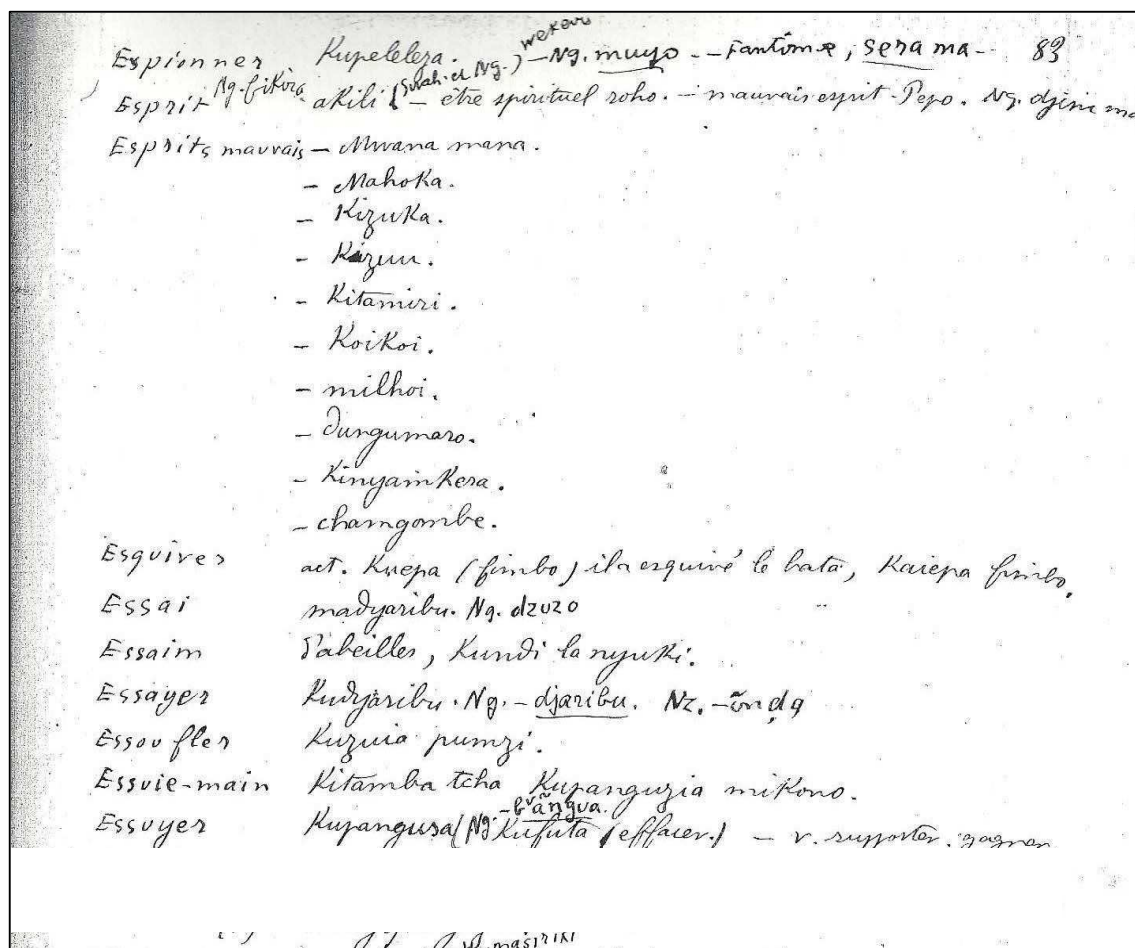 Espionner Kupeleleza. – Ng. muyo – Fantôme, serama – 83
Esprit Ng. fikira akili (Swah. et Ng.) – être spirituel roho. – mauvais esprit – Pepo. Ng. djini
Esprits mauvais – Mwana mana.
– Mahoka.
– Kizuka.
– Kizuu.
– Kitamiri.
– Koikoi.
– milhoi.
– Dungumaro.
– Kinyamkera.
– chamgombe.
Esquiver act. Kuepa (fimbo) il a esquivé le bato, Kaiepa fimbo.
Essai madyaribu. Ng. dzuzo
Essaim d'abeilles, Kundi la nyuki.
Essayer Kudyaribu. Ng. – djaribu. Nz.
Essoufler Kuzuia pumzi.
Essuie-main Kitamba tcha Kupanguzia mikono.
Essuyer Kupangusa (Ng. Kufuta (effacer.) – v. supporter. gagner